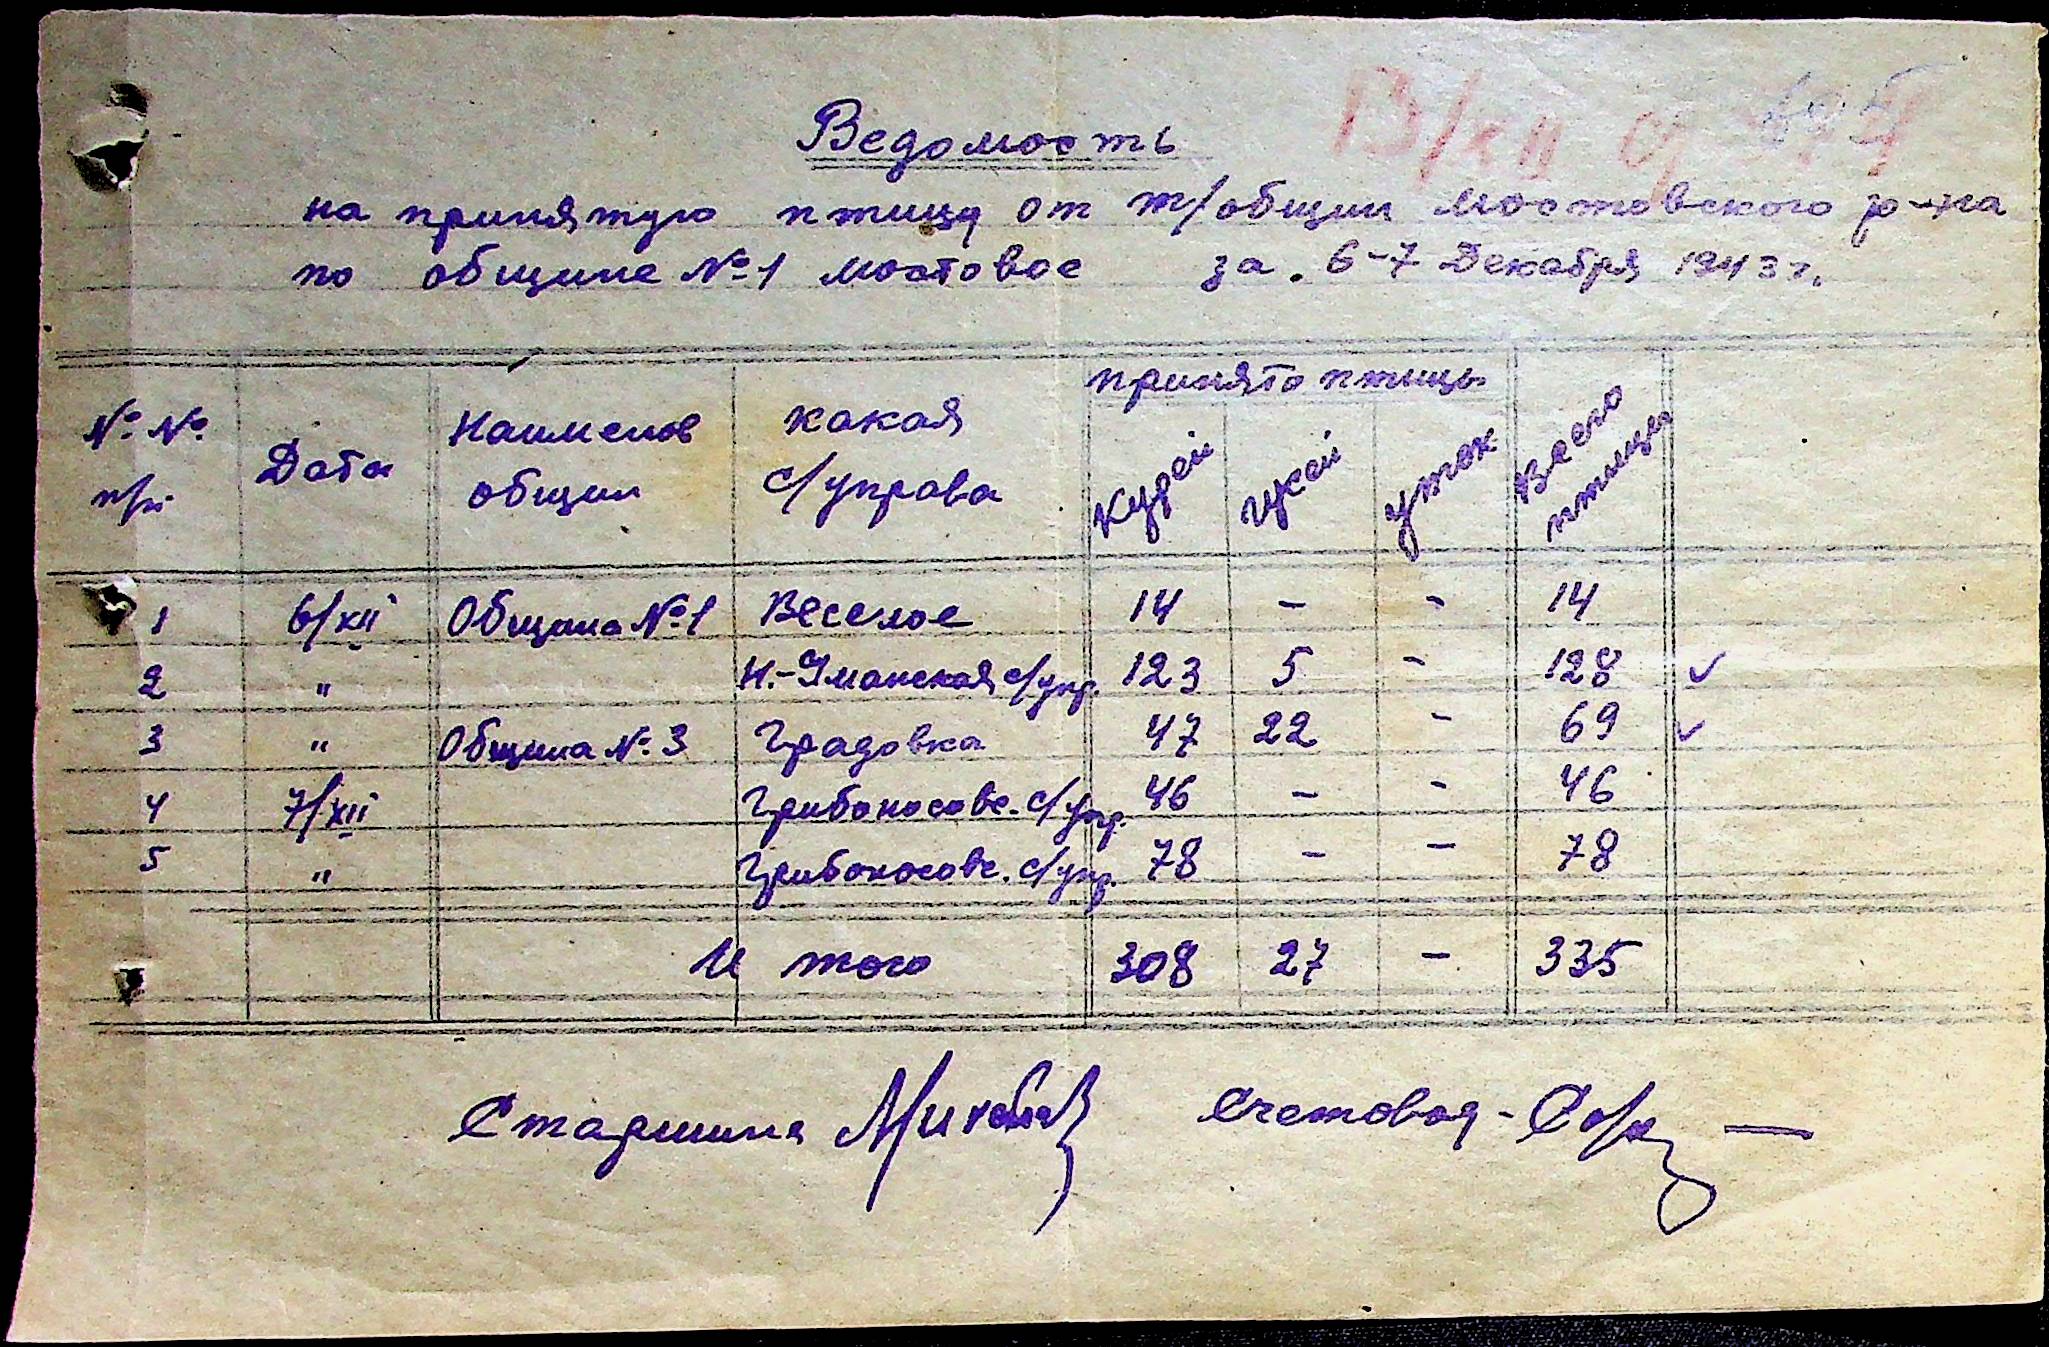 Ведомость
на принятую птицу от т/общин Мостовского р-на
по общине №1 Мостовое за. 6-7 Декабря 1943 г.
№.№. п/п. Дата Наименов общин какая с/управа принято птицы курей гусей уток Всего птицы
1 6/XII Община №1 Веселое 14 – – 14
2 " Н.-Уманская с/упр. 123 5 – 128 ✓
3 " Община №.3 Градовка 47 22 – 69 ✓
4 7/XII Грибоносовс. с/упр. 46 – – 46
5 " Грибоносовс. с/упр. 78 – – 78
Итого 308 27 – 335
Старшина Счетовод -